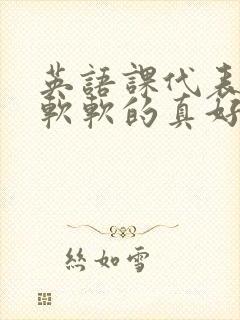 英語課代表
軟軟的真好
絲如雪